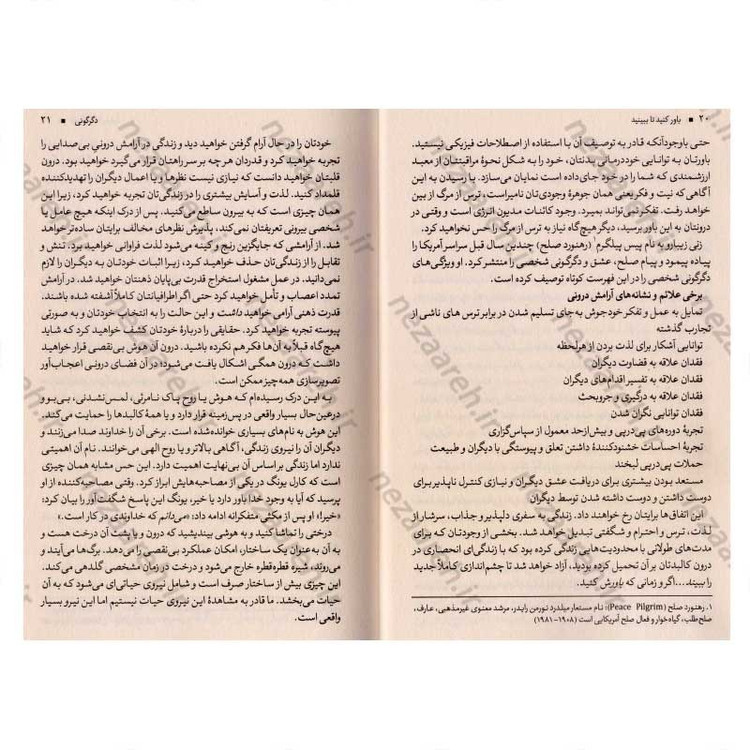 ۲۰ ■ باور کنید تا ببینید
حتی باوجودآنکه قادر به توصیف آن با استفاده از اصطلاحات فیزیکی نیستید.
باورتان به توانایی خوددرمانی بدنتان، خود را به شکل نحوهٔ مراقبتتان از معبد
ارزشمندی که شما را در خود جای‌داده است نمایان می‌سازد. با رسیدن به این
آگاهی که نیت و فکر یعنی همان جوهرهٔ وجودی‌تان نامیراست، ترس از مرگ از بین
خواهد رفت. تفکر نمی‌تواند بمیرد. وجود کائنات مدیون انرژی است و وقتی در
درونتان به این باور برسید، دیگر هیچ‌گاه نیاز به ترس از مرگ را حس نخواهید کرد.
زنی زیبارو به نام پیس پیلگرم (رهنورد صلح) چندین سال قبل سراسر آمریکا را
پیاده پیمود و پیام صلح، عشق و دگرگونی شخصی را منتشر کرد. او ویژگی‌های
دگرگونی شخصی را در این فهرست کوتاه توصیف کرده است.
برخی علائم و نشانه‌های آرامش درونی
تمایل به عمل و تفکر خودجوش به‌جای تسلیم شدن در برابر ترس های ناشی از
تجارب گذشته
توانایی آشکار برای لذت بردن از هرلحظه
فقدان علاقه به قضاوت دیگران
فقدان علاقه به تفسیر اقدام‌های دیگران
فقدان علاقه به درگیری و جروبحث
فقدان توانایی نگران شدن
تجربهٔ دوره‌های پی‌درپی و بیش‌ازحد معمول از سپاس‌گزاری
تجربهٔ احساسات خشنودکنندهٔ داشتن تعلق و پیوستگی با دیگران و طبیعت
حملات پی‌درپی لبخند
مستعد بودن بیشتری برای دریافت عشق دیگران و نیازی کنترل ناپذیر برای
دوست داشتن و دوست داشته شدن توسط دیگران
این اتفاق‌ها برایتان رخ خواهند داد. زندگی به سفری دلپذیر و جذاب، سرشار از
لذت، ترس و احترام و شگفتی تبدیل خواهد شد. بخشی از وجودتان که برای
مدت‌های طولانی با محدودیت‌هایی زندگی کرده بود که با زندگی‌ای انحصاری در
درون کالبدتان به آن تحمیل کرده بودید، آزاد خواهد شد تا چشم‌اندازی کاملاً جدید
را ببیند...اگر و زمانی که باورش کنید.
۱. رهنورد صلح (Peace Pilgrim): نام مستعار میلدرد نورمن رایدر، مرشد معنوی غیرمذهبی، عارف،
صلح‌طلب، گیاه‌خوار و فعال صلح آمریکایی است (۱۹۰۸-۱۹۸۱)
دگرگونی ■ ۲۱
خودتان را در حال آرام گرفتن خواهید دید و زندگی در آرامش درونیِ بی‌صدایی را
تجربه خواهید کرد و قدردان هر چه بر سر راهتان قرار می‌گیرد خواهید بود. درون
قلبتان خواهید دانست که نیازی نیست نظرها و یا اعمال دیگران را تهدیدکننده
قلمداد کنید. لذت و آسایش بیشتری را در زندگی‌تان تجربه خواهید کرد، زیرا این
همان چیزی است که به بیرون ساطع می‌کنید. پس از درک اینکه هیچ عامل یا
شخصی بیرونی تعریفتان نمی‌کند، پذیرش نظرهای مخالف برایتان ساده‌تر خواهد
شد. از آرامشی که جایگزین رنج و کینه می‌شود لذت فراوانی خواهید برد. تنش و
تقابل را از زندگی‌تان حذف خواهید کرد، زیرا اثبات خودتان به دیگران را لازم
نمی‌دانید. در عمل مشغول استخراج قدرت بی‌پایان ذهنتان خواهید شد. در آرامش
تمدد اعصاب و تأمل خواهید کرد حتی اگر اطرافیانتان کاملاً آشفته شده باشند.
قدرت ذهنی آرامی خواهید داشت و این حالت را به انتخاب خودتان و به صورتی
پیوسته تجربه خواهید کرد. حقایقی را دربارهٔ خودتان کشف خواهید کرد که شاید
هیچ‌گاه قبلاً به آن‌ها فکر هم نکرده باشید. درون آن هوش بی‌نقصی قرار خواهید
داشت که درون همگی اشکال یافت می‌شود؛ در آن فضای درونی اعجاب‌آور
تصویرسازی همه‌چیز ممکن است.
به این درک رسیده‌ام که هوش یا روح پاک نامرئی، لمس‌نشدنی، بی‌بو و
درعین‌حال بسیار واقعی در پس‌زمینه قرار دارد و یا همهٔ کالبدها را حمایت می‌کند.
این هوش به نام‌های بسیاری خوانده‌شده است. برخی آن را خداوند صدا می‌زنند و
دیگران آن را نیروی زندگی، آگاهی بالاتر و یا روح الهی می‌خوانند. نام آن اهمیتی
ندارد اما زندگی بر اساس آن بی‌نهایت اهمیت دارد. این حس مشابه همان چیزی
است که کارل یونگ در یکی از مصاحبه‌هایش ابراز کرد. وقتی مصاحبه‌کننده از او
پرسید که آیا به وجود خدا باور دارد یا خیر، یونگ این پاسخ شگفت‌آور را بیان کرد:
«خیر!» او پس از مکثی متفکرانه ادامه داد: «می‌دانم که خداوندی در کار است.»
درختی را تماشا کنید و به هوشی بیندیشید که درون و یا پشت آن درخت هست و
به آن به‌عنوان یک ساختار، امکان عملکرد بی‌نقصی را می‌دهد. برگ‌ها می‌آیند و
می‌روند، شیره قطره‌قطره خارج می‌شود و درخت در زمان مشخصی گلدهی می‌کند.
این چیزی بیش از ساختار صرف است و شامل نیروی حیاتی‌ای می‌شود که به آن
حیات می‌بخشد. ما قادر به مشاهدهٔ این نیروی حیات نیستیم اما این نیرو بسیار
واقعی است.
nezaareh.ir